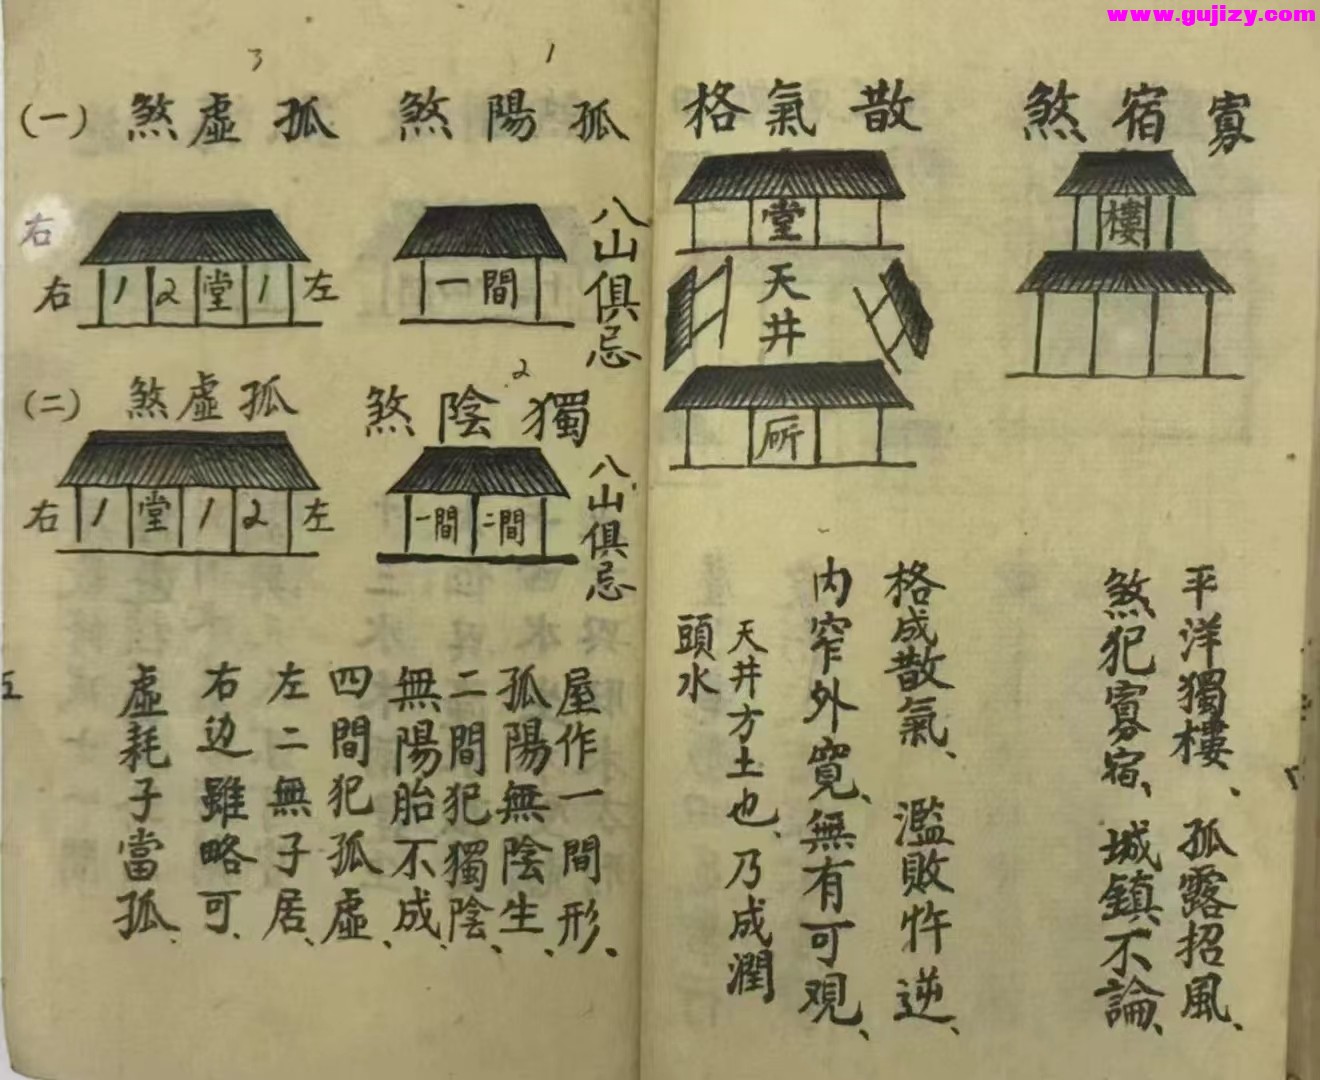 www.gujizy.com
寡宿煞
樓
平洋獨樓、孤露招風、
煞犯寡宿、城鎮不論、
散氣格
堂
天井
格成散氣、濫敗忤逆、
内窄外寬、無有可观、
天井方土也、乃成潤
頭水
1
孤陽煞
八山俱忌
一間
2
獨陰煞
八山俱忌
一間 二間
3
(一) 孤虛煞
右
右 1 2 堂 1 左
(二) 孤虛煞
右 1 堂 1 2 左
屋作一間形、
孤陽無陰生、
二間犯獨陰、
無陽胎不成、
四間犯孤虛、
左二無子居、
右边雖略可、
虛耗子當孤、